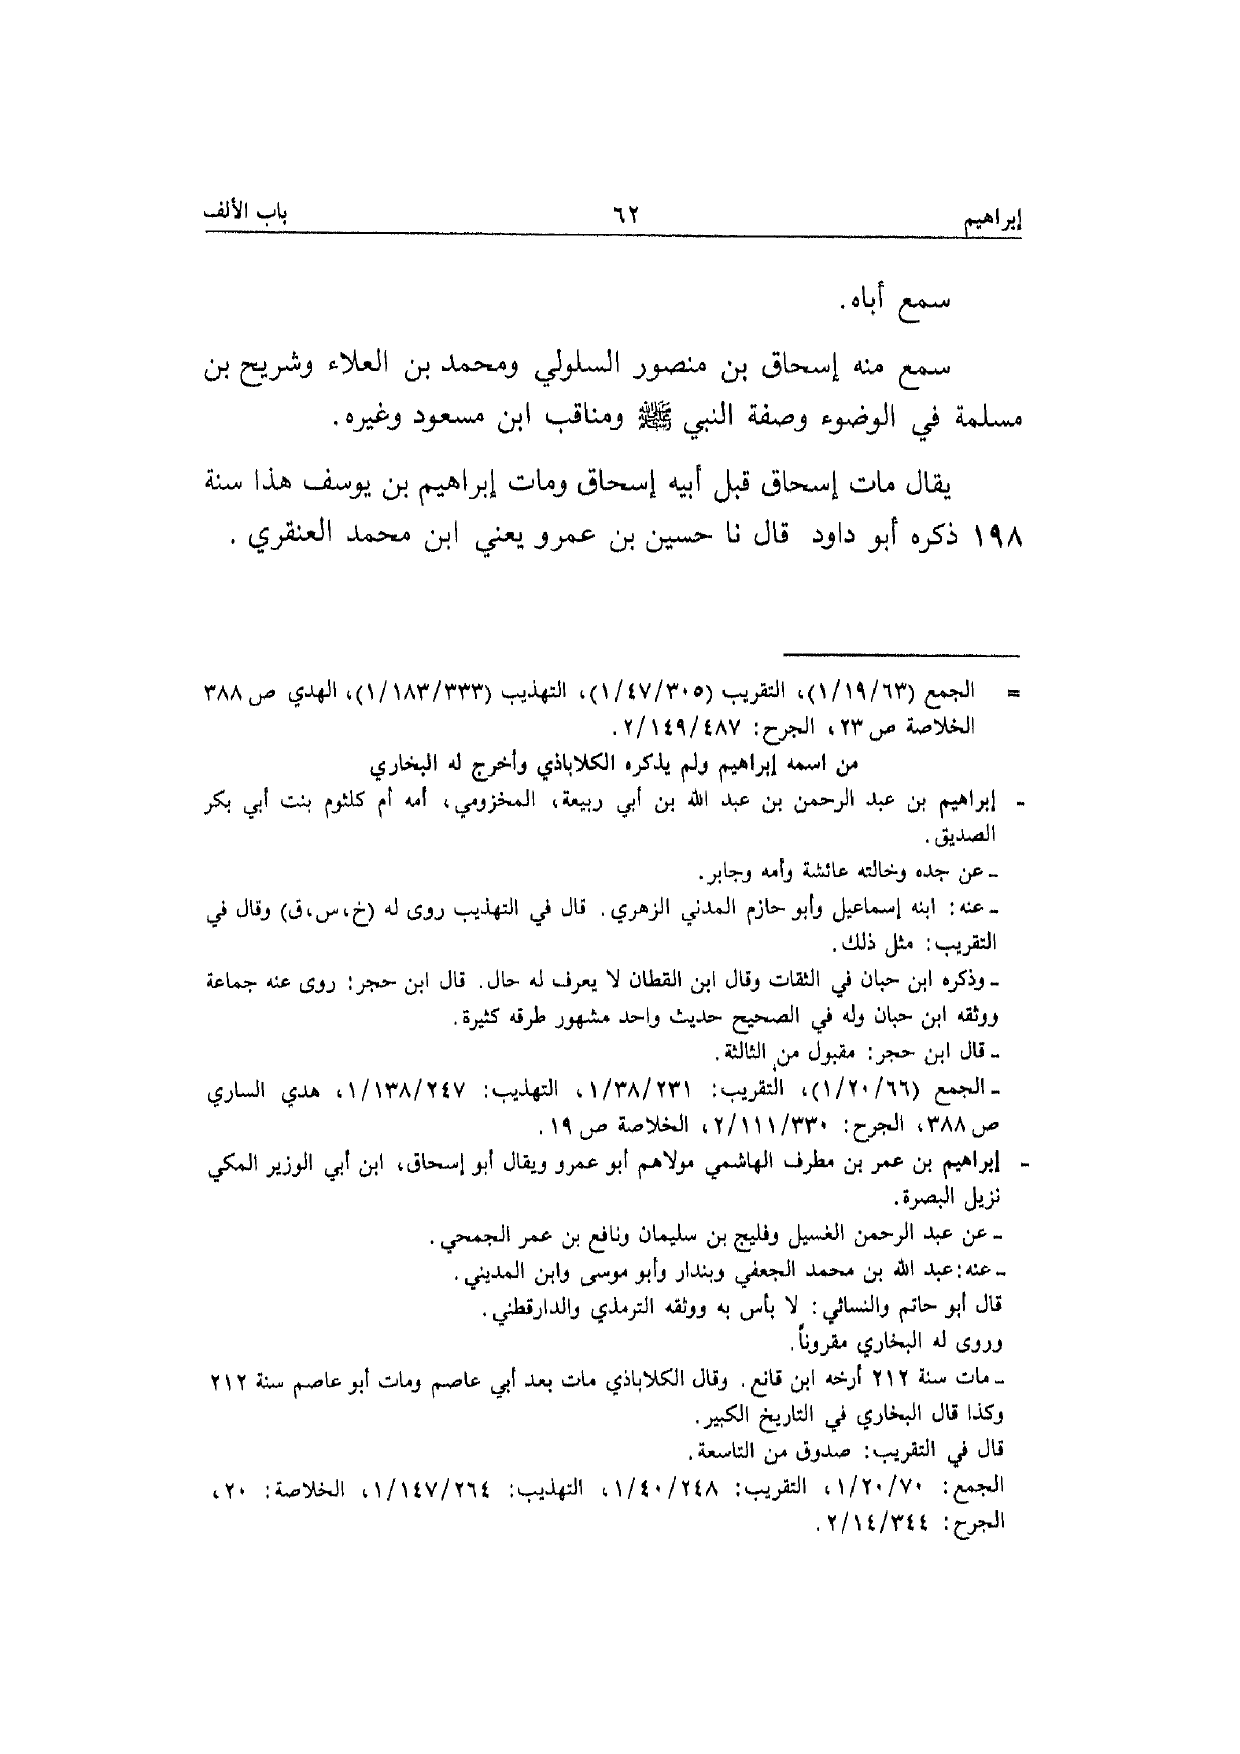 إبراهيم ٦٢ باب الألف
سمع أباه.
سمع منه إسحاق بن منصور السلولي ومحمد بن العلاء وشريح بن
مسلمة في الوضوء وصفة النبي ﷺ ومناقب ابن مسعود وغيره.
يقال مات إسحاق قبل أبيه إسحاق ومات إبراهيم بن يوسف هذا سنة
١٩٨ ذكره أبو داود قال نا حسين بن عمرو يعني ابن محمد العنقري .
= الجمع (١/١٩/٦٣)، التقريب (١/٤٧/٣٠٥)، التهذيب (١/١٨٣/٣٣٣)، الهدي ص ٣٨٨
الخلاصة ص ٢٣، الجرح: ٢/١٤٩/٤٨٧.
من اسمه إبراهيم ولم يذكره الكلاباذي وأخرج له البخاري
- إبراهيم بن عبد الرحمن بن عبد الله بن أبي ربيعة، المخزومي، أمه أم كلثوم بنت أبي بكر
الصديق.
ـ عن جده وخالته عائشة وأمه وجابر.
ـ عنه: ابنه إسماعيل وأبو حازم المدني الزهري. قال في التهذيب روى له (خ،س،ق) وقال في
التقريب: مثل ذلك.
ـ وذكره ابن حبان في الثقات وقال ابن القطان لا يعرف له حال. قال ابن حجر: روى عنه جماعة
ووثقه ابن حبان وله في الصحيح حديث واحد مشهور طرقه كثيرة.
ـ قال ابن حجر: مقبول من الثالثة.
ـ الجمع (١/٢٠/٦٦)، التقريب: ١/٣٨/٢٣١، التهذيب: ١/١٣٨/٢٤٧، هدي الساري
ص ٣٨٨، الجرح: ٢/١١١/٣٣٠، الخلاصة ص ١٩.
- إبراهيم بن عمر بن مطرف الهاشمي مولاهم أبو عمرو ويقال أبو إسحاق، ابن أبي الوزير المكي
نزيل البصرة.
ـ عن عبد الرحمن الغسيل وفليح بن سليمان ونافع بن عمر الجمحي.
ـ عنه: عبد الله بن محمد الجعفي وبندار وأبو موسى وابن المديني.
قال أبو حاتم والنسائي: لا بأس به ووثقه الترمذي والدارقطني.
وروى له البخاري مقروناً.
ـ مات سنة ٢١٢ أرخه ابن قانع. وقال الكلاباذي مات بعد أبي عاصم ومات أبو عاصم سنة ٢١٢
وكذا قال البخاري في التاريخ الكبير.
قال في التقريب: صدوق من التاسعة.
الجمع: ١/٢٠/٧٠، التقريب: ١/٤٠/٢٤٨، التهذيب: ١/١٤٧/٢٦٤، الخلاصة: ٢٠،
الجرح: ٢/١٤/٣٤٤.